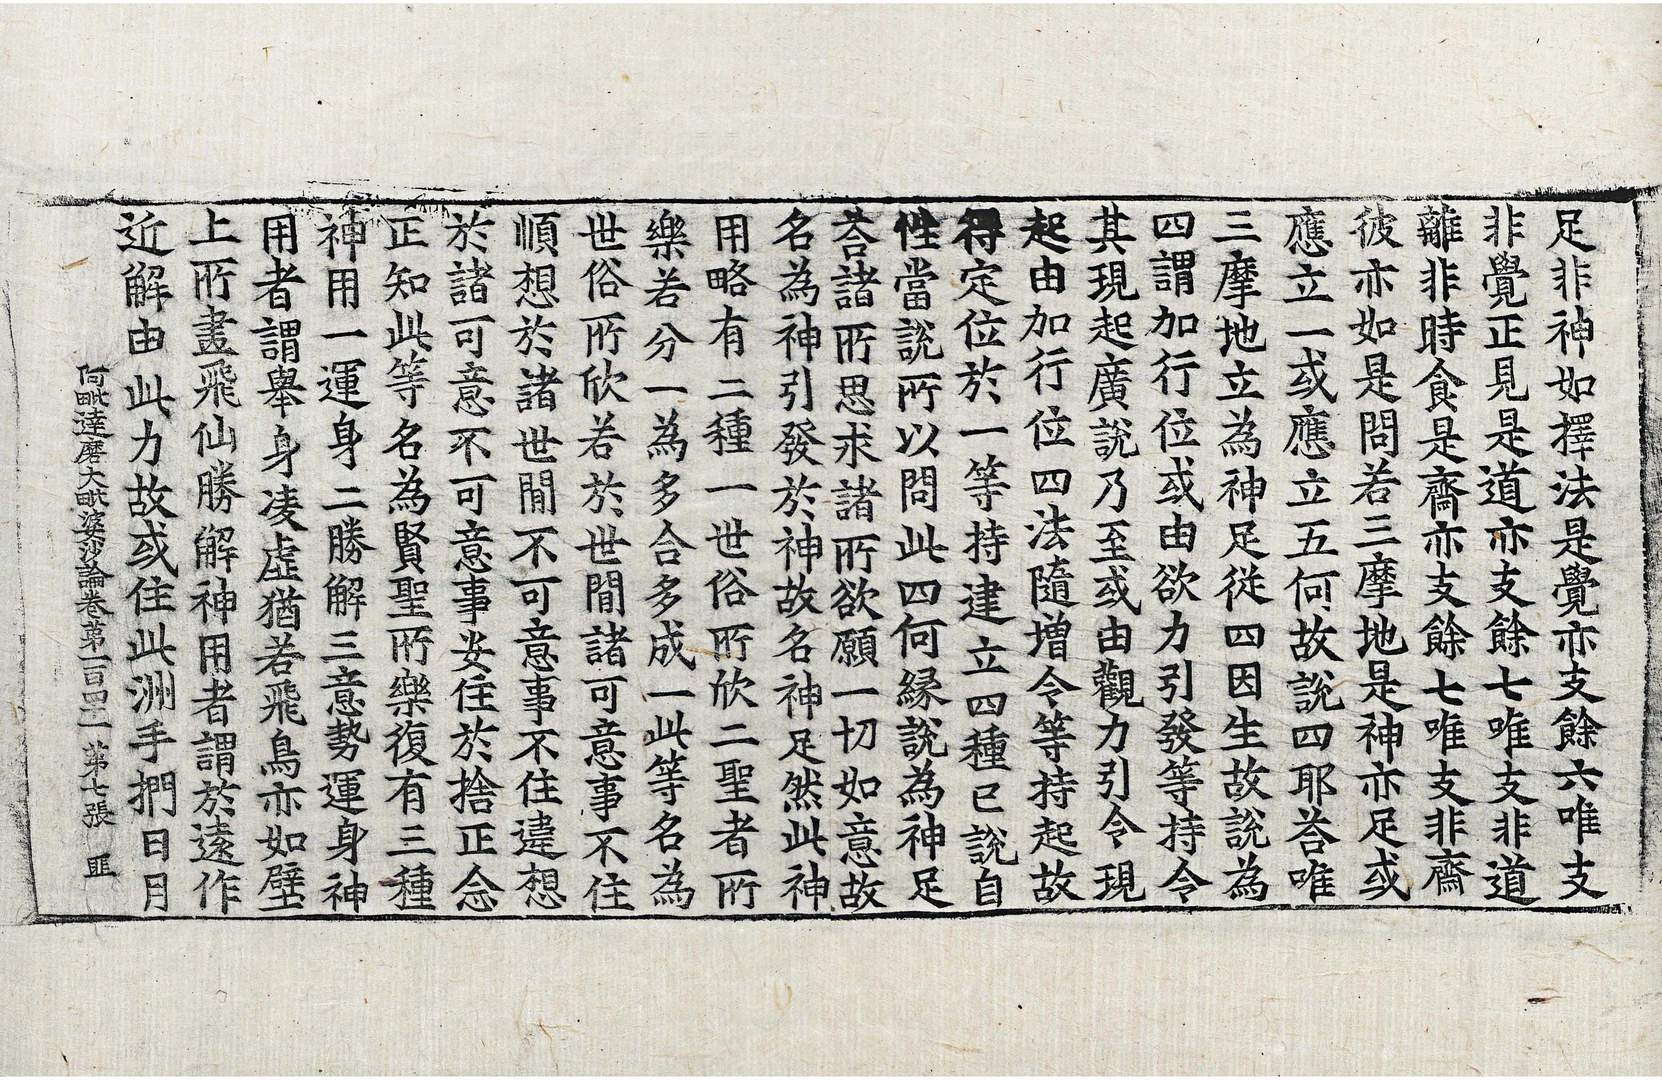 足非神如擇法是覺亦支餘六唯支
非覺正見是道亦支餘七唯支非道
離非時食是齋亦支餘七唯支非齋
彼亦如是問若三摩地是神亦足或
應立一或應立五何故說四耶荅唯
三摩地立為神足從四因生故說為
四謂加行位或由欲力引發等持令
其現起廣說乃至或由觀力引令現
起由加行位四法隨增令等持起故
得定位於一等持建立四種已說自
性當說所以問此四何緣說為神足
荅諸所思求諸所欲願一切如意故
名為神引發於神故名神足然此神
用略有二種一世俗所欣二聖者所
樂若分一為多合多成一此等名為
世俗所欣若於世間諸可意事不住
順想於諸世間不可意事不住違想
於諸可意不可意事安住於捨正念
正知此等名為賢聖所樂復有三種
神用一運身二勝解三意勢運身神
用者謂舉身凌虛猶若飛鳥亦如壁
上所畫飛仙勝解神用者謂於遠作
近解由此力故或住此洲手捫日月
阿毗達磨大毗婆沙論卷第一百四十一 第七張 匪